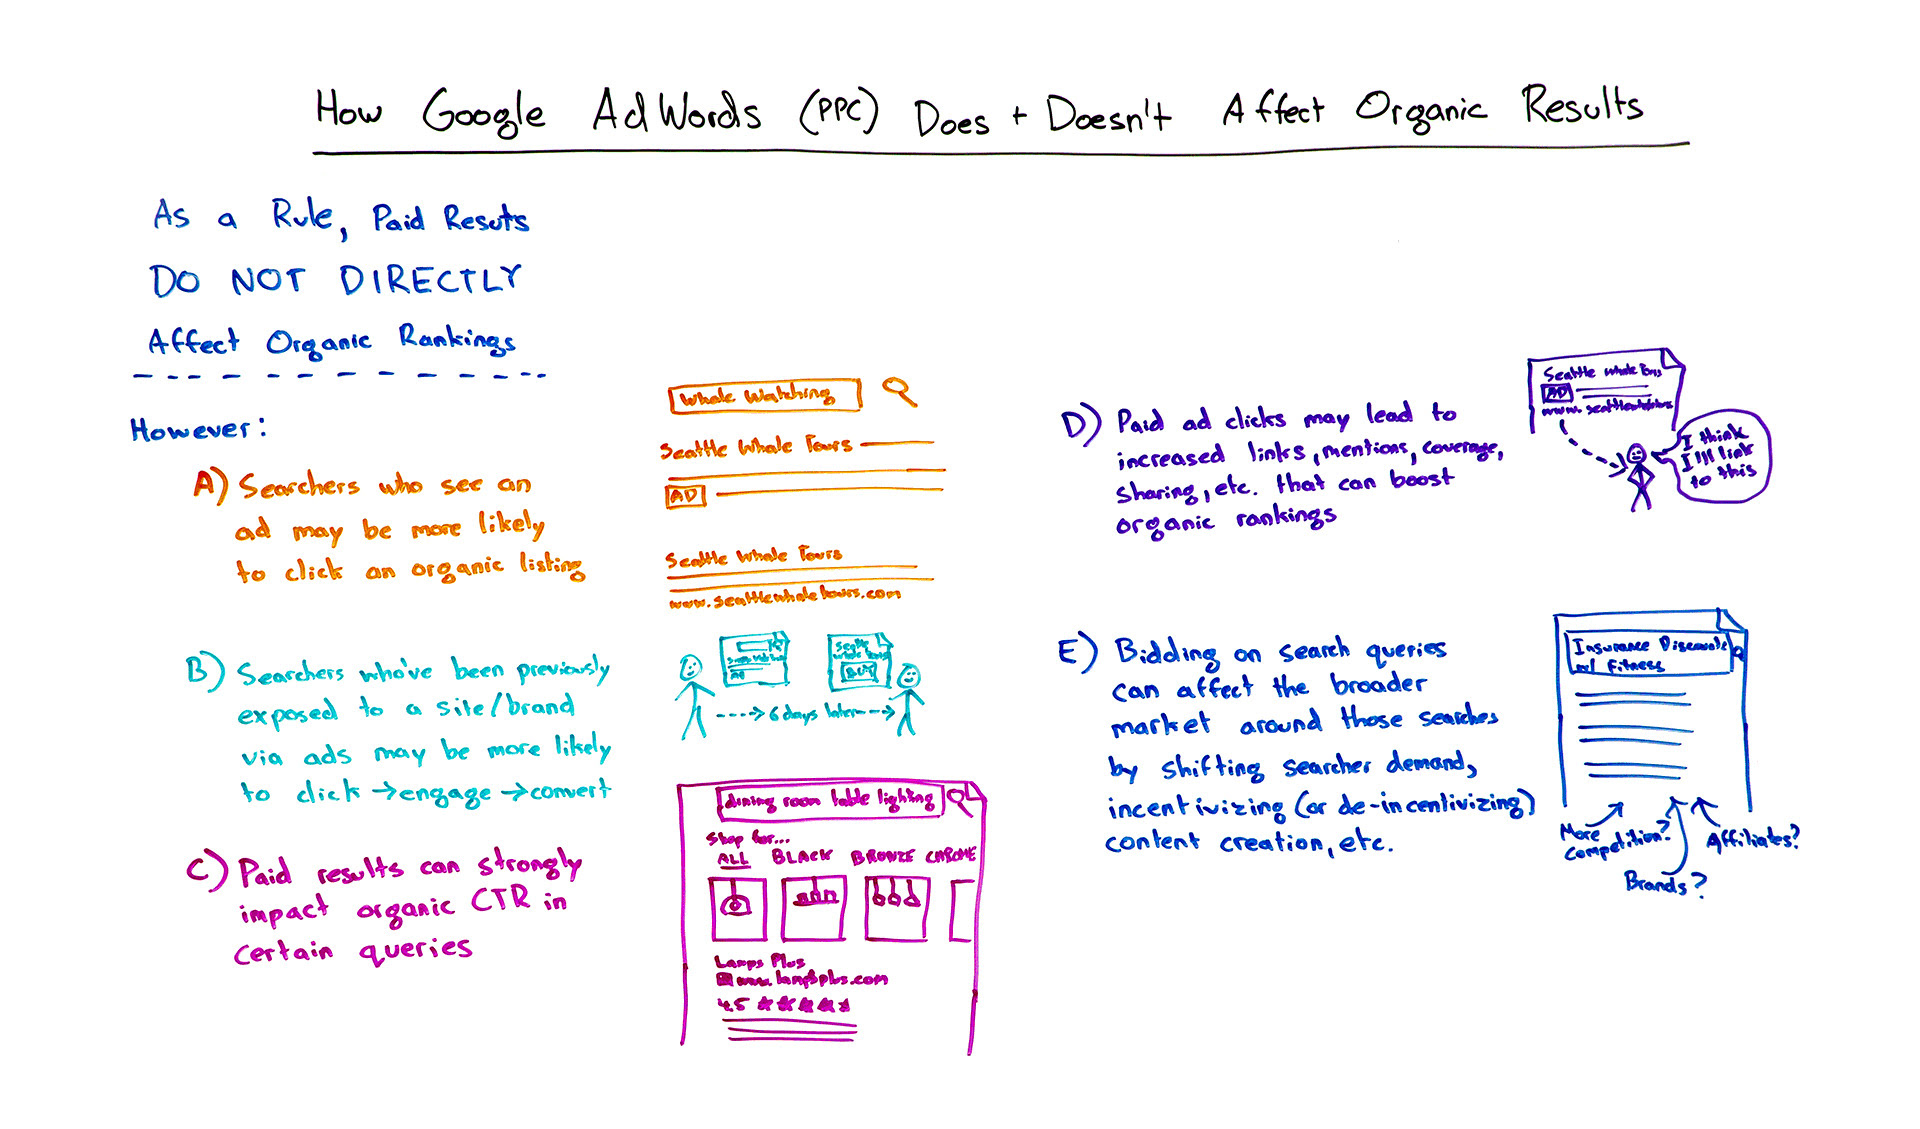 How Google AdWords (PPC) Does + Doesn't Affect Organic Results
As a Rule, Paid Resuts
DO NOT DIRECTLY
Affect Organic Rankings
However:
A) Searchers who see an
ad may be more likely
to click an organic listing
Whale Watching
Seattle Whale Tours
AD
Seattle Whale Tours
www.seattlewhaletours.com
B) Searchers who've been previously
exposed to a site/brand
via ads may be more likely
to click → engage → convert
AD
Seattle
Whale Tours
BUY
6 days later
C) Paid results can strongly
impact organic CTR in
certain queries
dining room table lighting
Shop for...
ALL BLACK BRONZE CHROME
Lamps Plus
www.lampsplus.com
4.5 ★★★★★
D) Paid ad clicks may lead to
increased links, mentions, coverage,
sharing, etc. that can boost
organic rankings
Seattle Whale Tours
AD
I think
I'll link
to this
E) Bidding on search queries
can affect the broader
market around those searches
by shifting searcher demand,
incentivizing (or de-incentivizing)
content creation, etc.
Insurance
w/ Fitness
More
Competition?
Brands?
Affiliates?